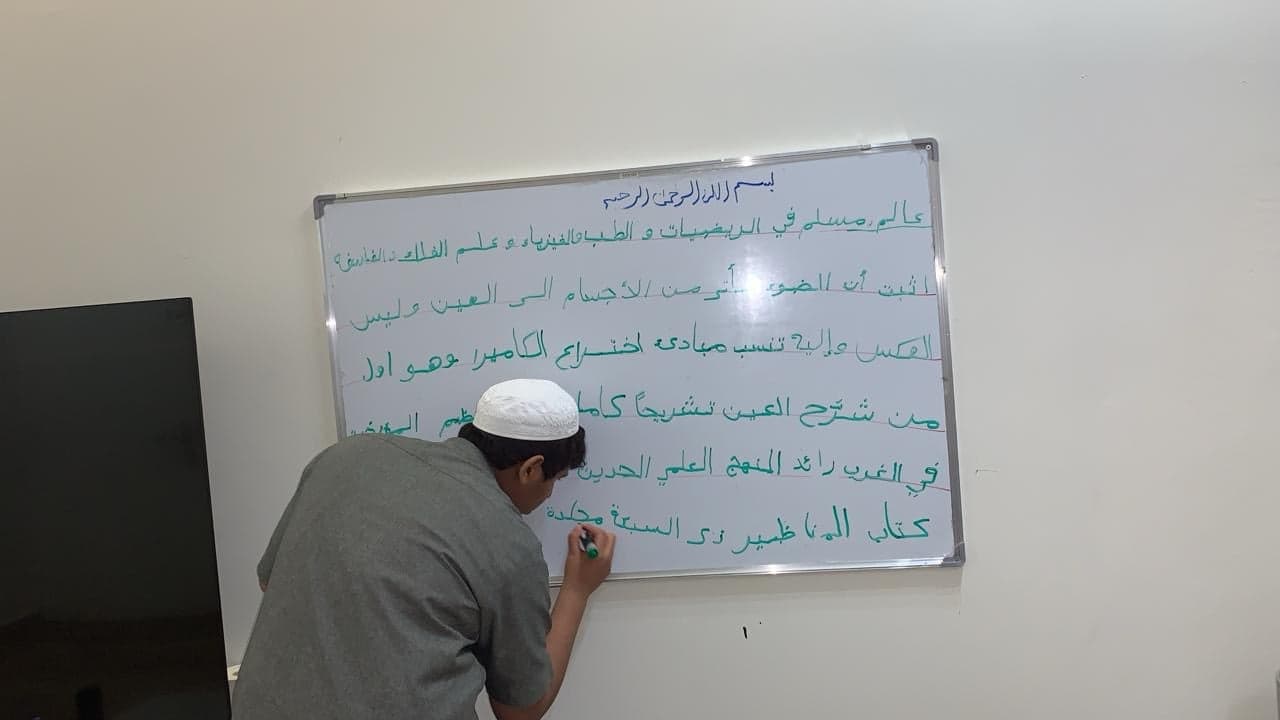 بسم الله الرحمن الرحيم
عالم مسلم في الريضيات و الطب والفيزياء و علم الفلك
اثبت أن الضوء يأتر من الأجسام الى العين وليس
العكس وإلية تنسب مبادئ اختراع الكاميرا وهو اول
من شرَّح العين تشريحاً
في الغرب رائد المنهج العلمي الحديث
كتاب المناظير ذي السبعة مجلدة